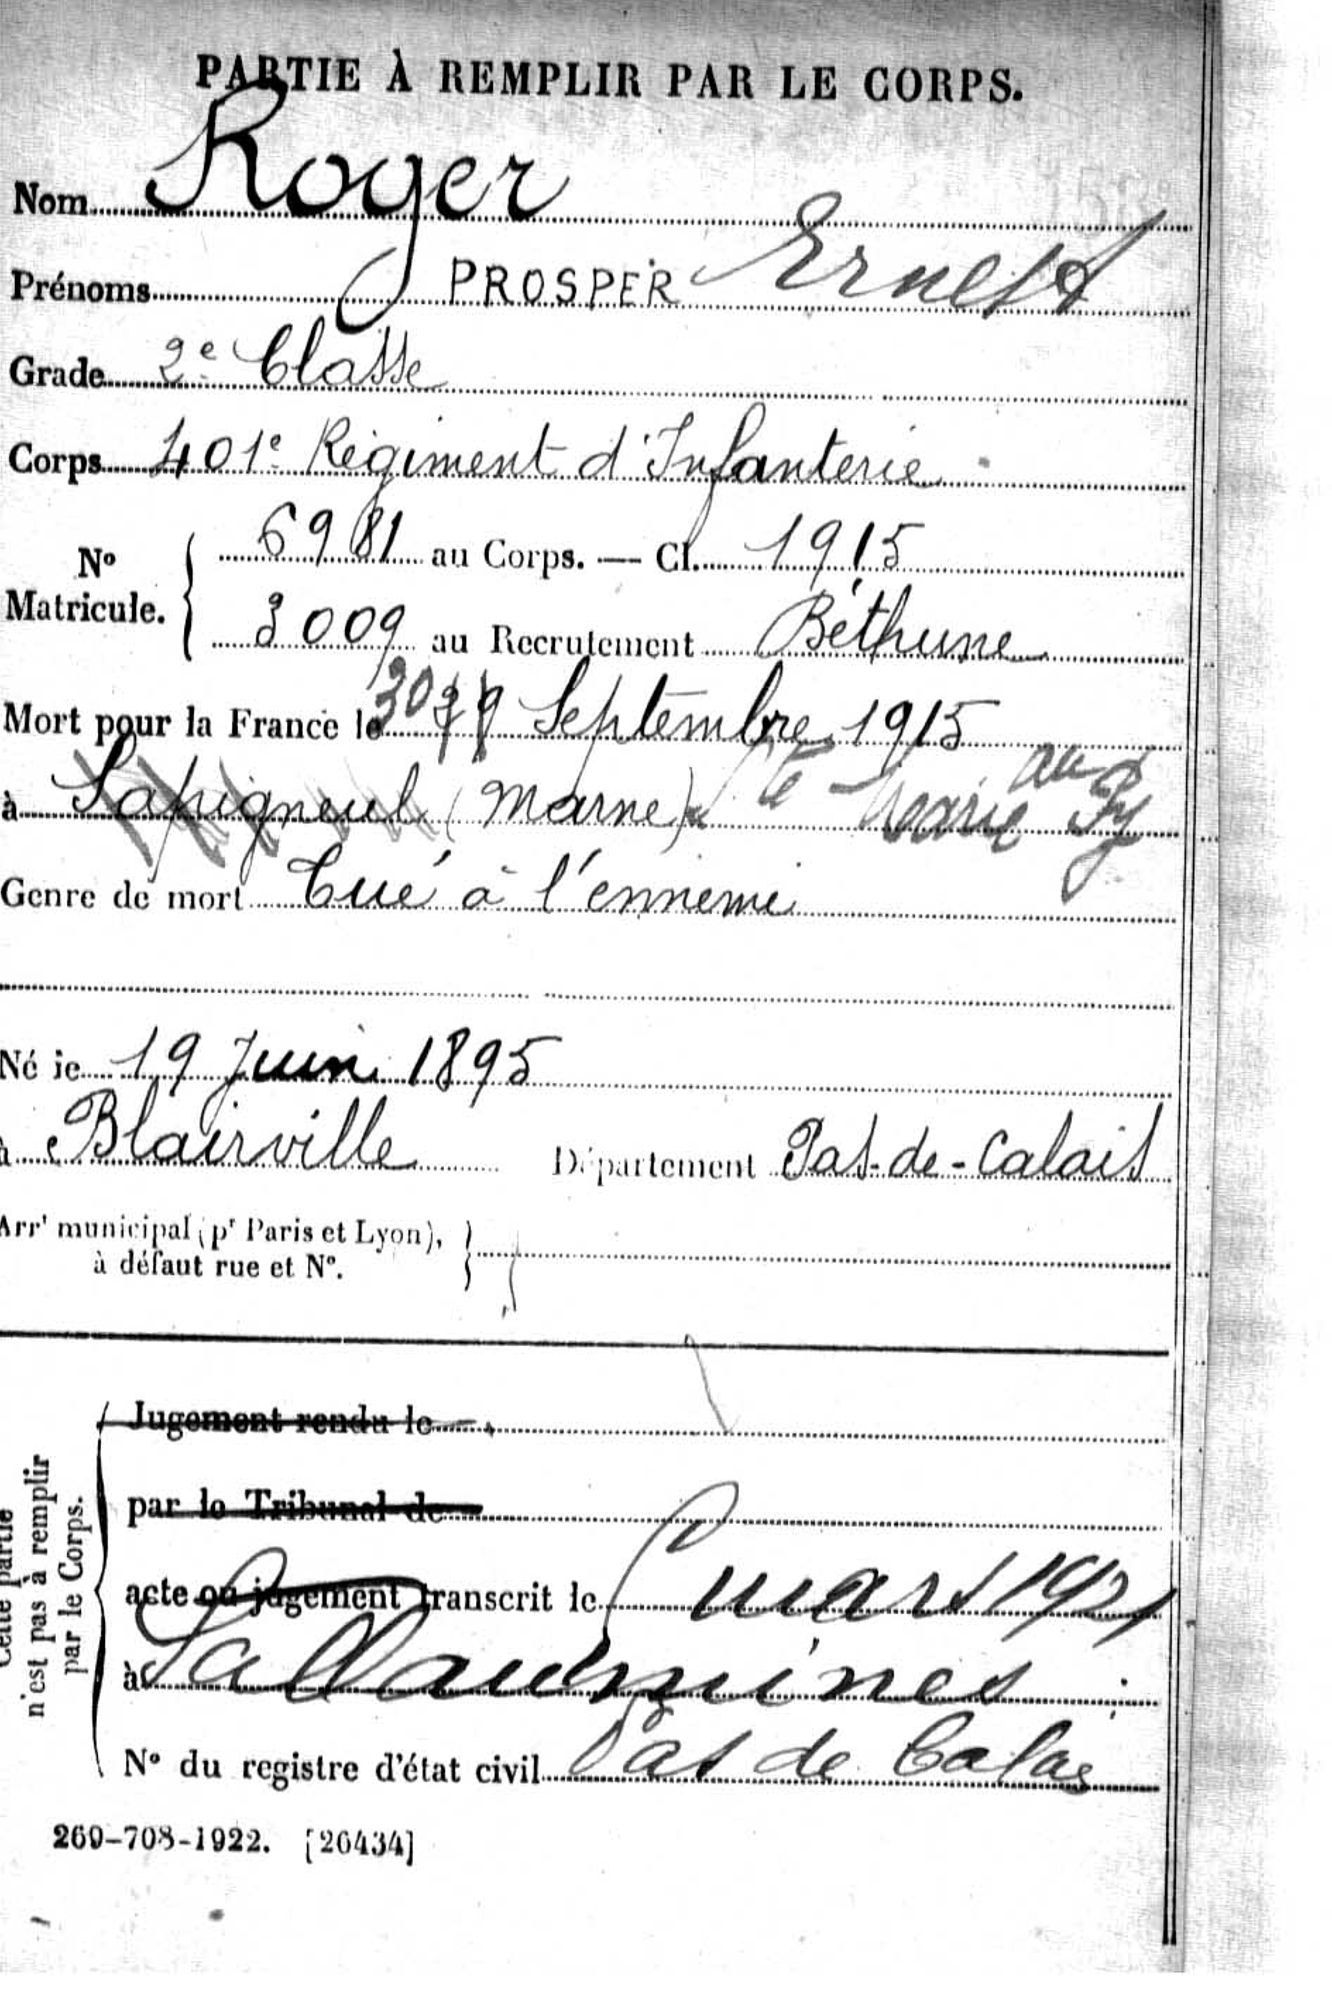 PARTIE À REMPLIR PAR LE CORPS.
Nom Royer
Prénoms PROSPER Ernest
Grade 2e Classe
Corps 401e Régiment d'Infanterie
No Matricule. { 6981 au Corps. — Cl. 1915
3009 au Recrutement Béthune
Mort pour la France le 30 29 Septembre 1915
à Sapigneul (Marne) Ste Marie au Py
Genre de mort Tué à l'ennemi
Né le 19 Juin 1895
à Blairville Département Pas-de-Calais
Arrt municipal (pr Paris et Lyon),
à défaut rue et No. }
Cette partie n'est pas à remplir par le Corps.
Jugement rendu le
par le Tribunal de
acte ou jugement transcrit le mars 1921
à Sallaumines
No du registre d'état civil Pas de Calais
269-708-1922. [26434]